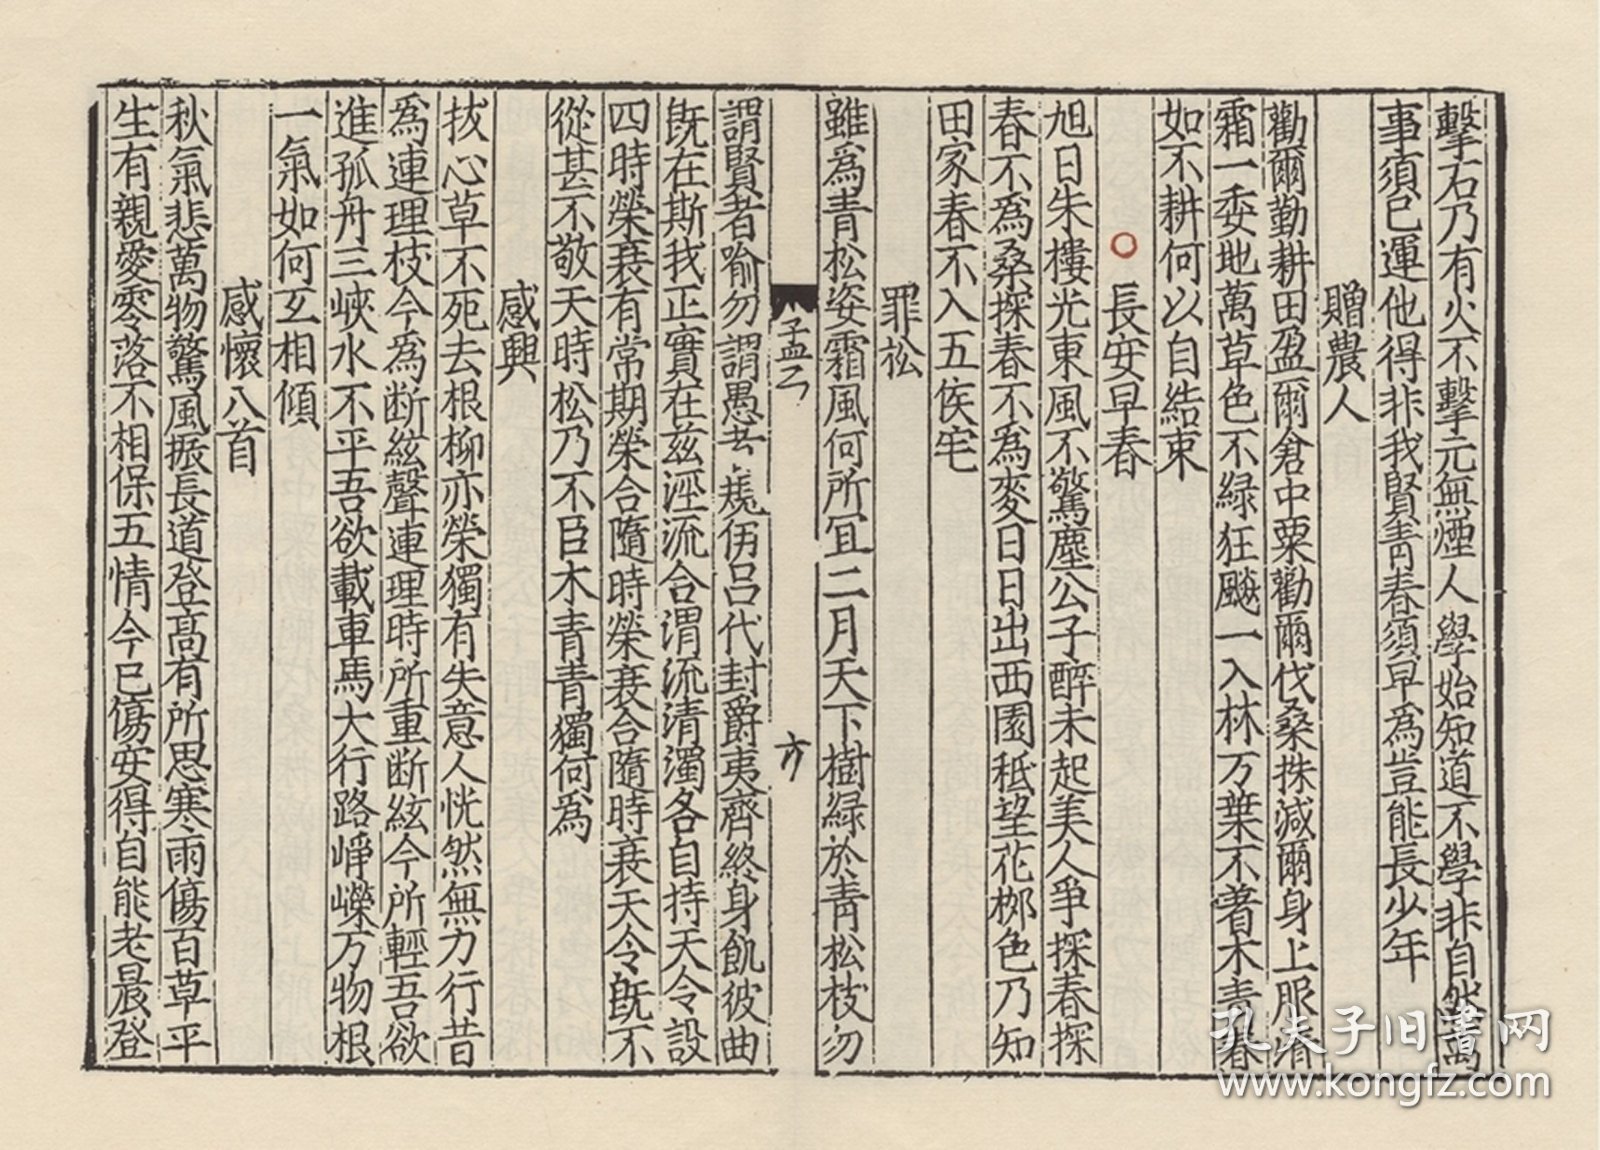 擊石乃有火不擊元無煙人學始知道不學非自然萬
事須已運他得非我賢青春須早為豈能長少年
贈農人
勸爾勤耕田盈爾倉中粟勸爾伐桑株減爾身上服清
霜一委地萬草色不緑狂飈一入林万葉不著木青春
如不耕何以自結束
長安早春
旭日朱樓光東風不驚塵公子醉未起美人爭探春探
春不為桑探春不為麥日日出西園秪望花栁色乃知
田家春不入五侯宅
罪松
雖為青松姿霜風何所冝二月天下樹緑於青松枝勿
孟乙
謂賢者喻勿謂愚者規伊呂代封爵夷齊終身飢彼曲
旣在斯我正實在兹涇流合渭流清濁各自持天令設
四時榮衰有常期榮合隨時榮衰合隨時衰天令旣不
從甚不敬天時松乃不臣木青青獨何為
感興
拔心草不死去根柳亦榮獨有失意人恍然無力行昔
為連理枝今為断絃聲連理時所重断絃今所輕吾欲
進孤舟三峽水不平吾欲載車馬大行路崢嶸万物根
一氣如何互相傾
感懷八首
秋氣悲萬物驚風振長道登髙有所思寒雨傷百草平
生有親愛零落不相保五情今已傷安得自能老晨登
孔夫子旧書网
www.kongfz.com